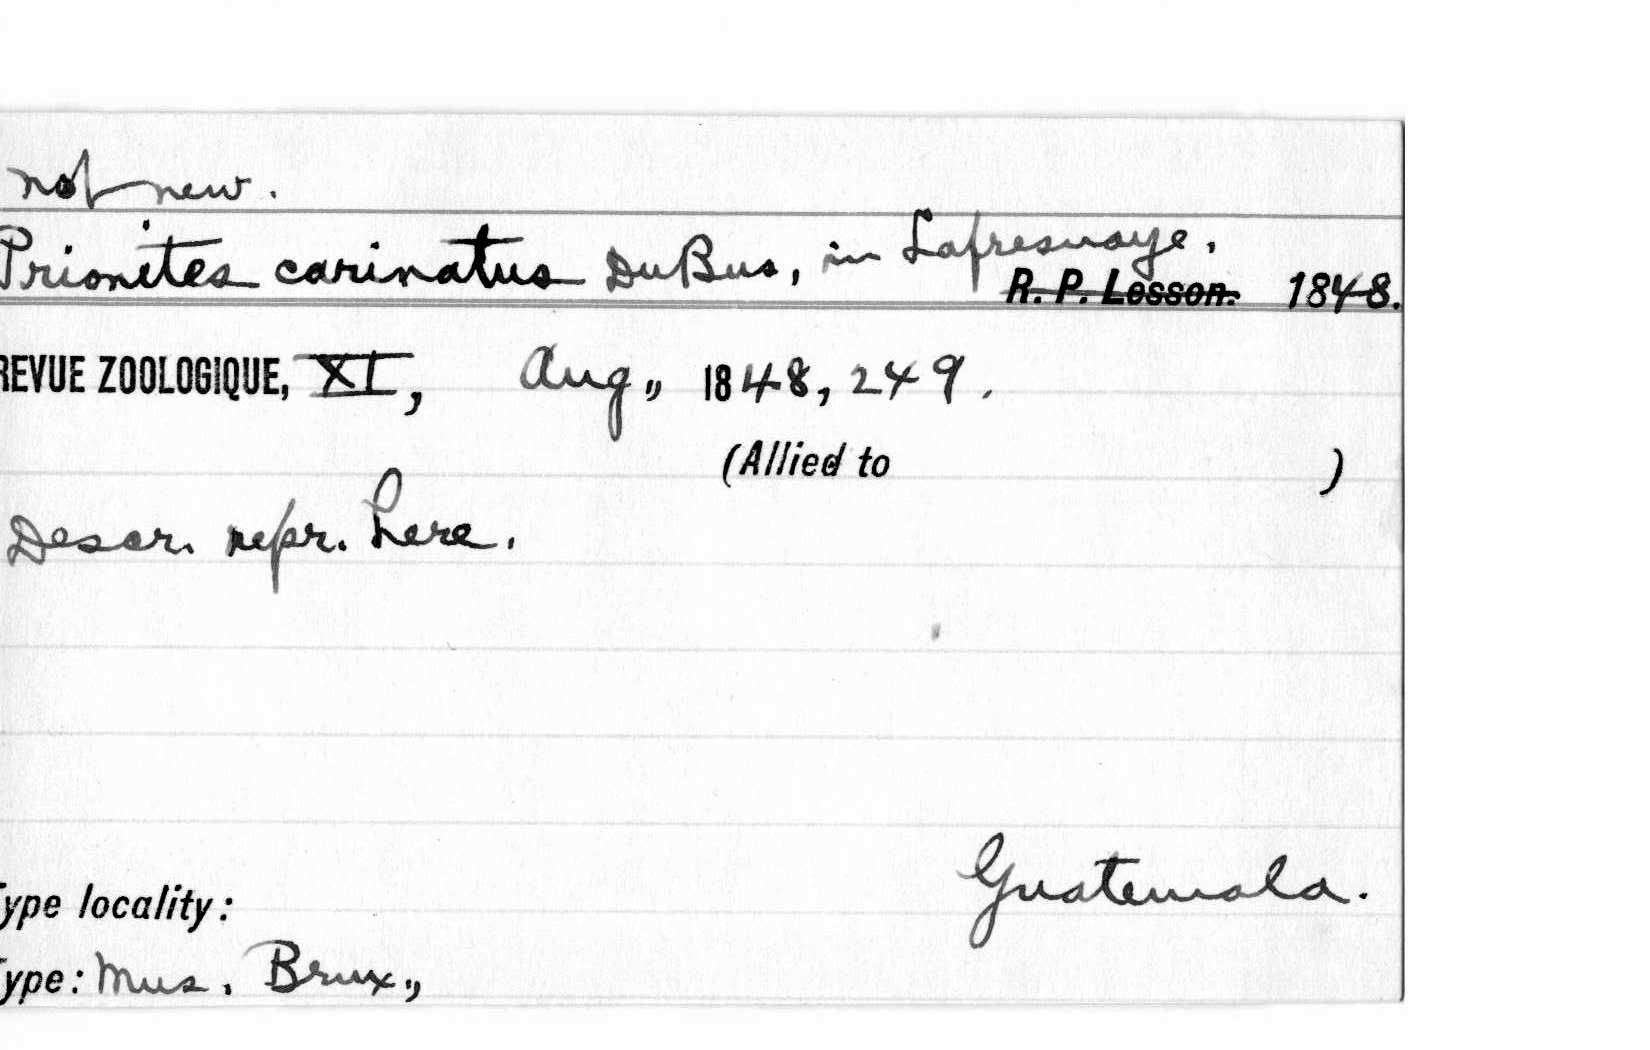 not new.
Prionites carinatus DuBus, in Lafresnaye.
R. P. Lesson. 1848.
REVUE ZOOLOGIQUE, XI, Aug., 1848, 249.
(Allied to )
Descr. repr. here.
Guatemala.
Type locality:
Type: Mus. Brux.,